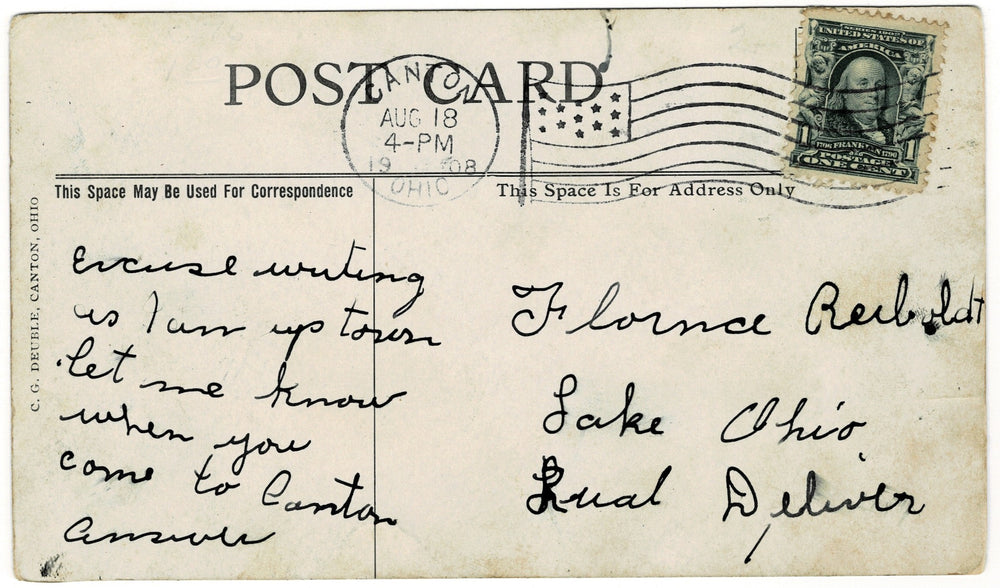 POST CARD
CANTON
AUG 18
4-PM
1908
OHIO
SERIES 1902
UNITED STATES OF
AMERICA
1706 FRANKLIN 1790
POSTAGE
1 ONE CENT 1
This Space May Be Used For Correspondence
This Space Is For Address Only
C. G. DEUBLE, CANTON, OHIO
Excuse writing
as I am up town
let me know
when you
come to Canton
Answer
Flornce Reiboldt
Lake Ohio
Rual Deliver